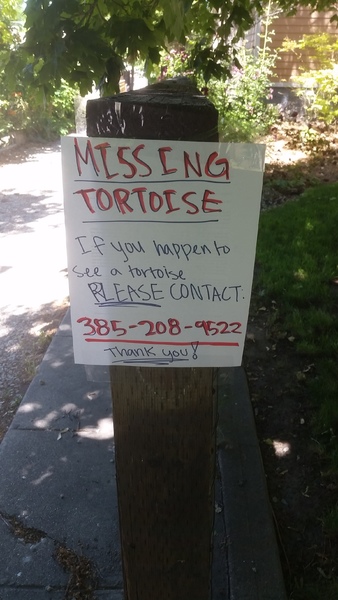 MISSING
TORTOISE
If you happen to
see a tortoise
PLEASE CONTACT.
385-208-9522
Thank you!